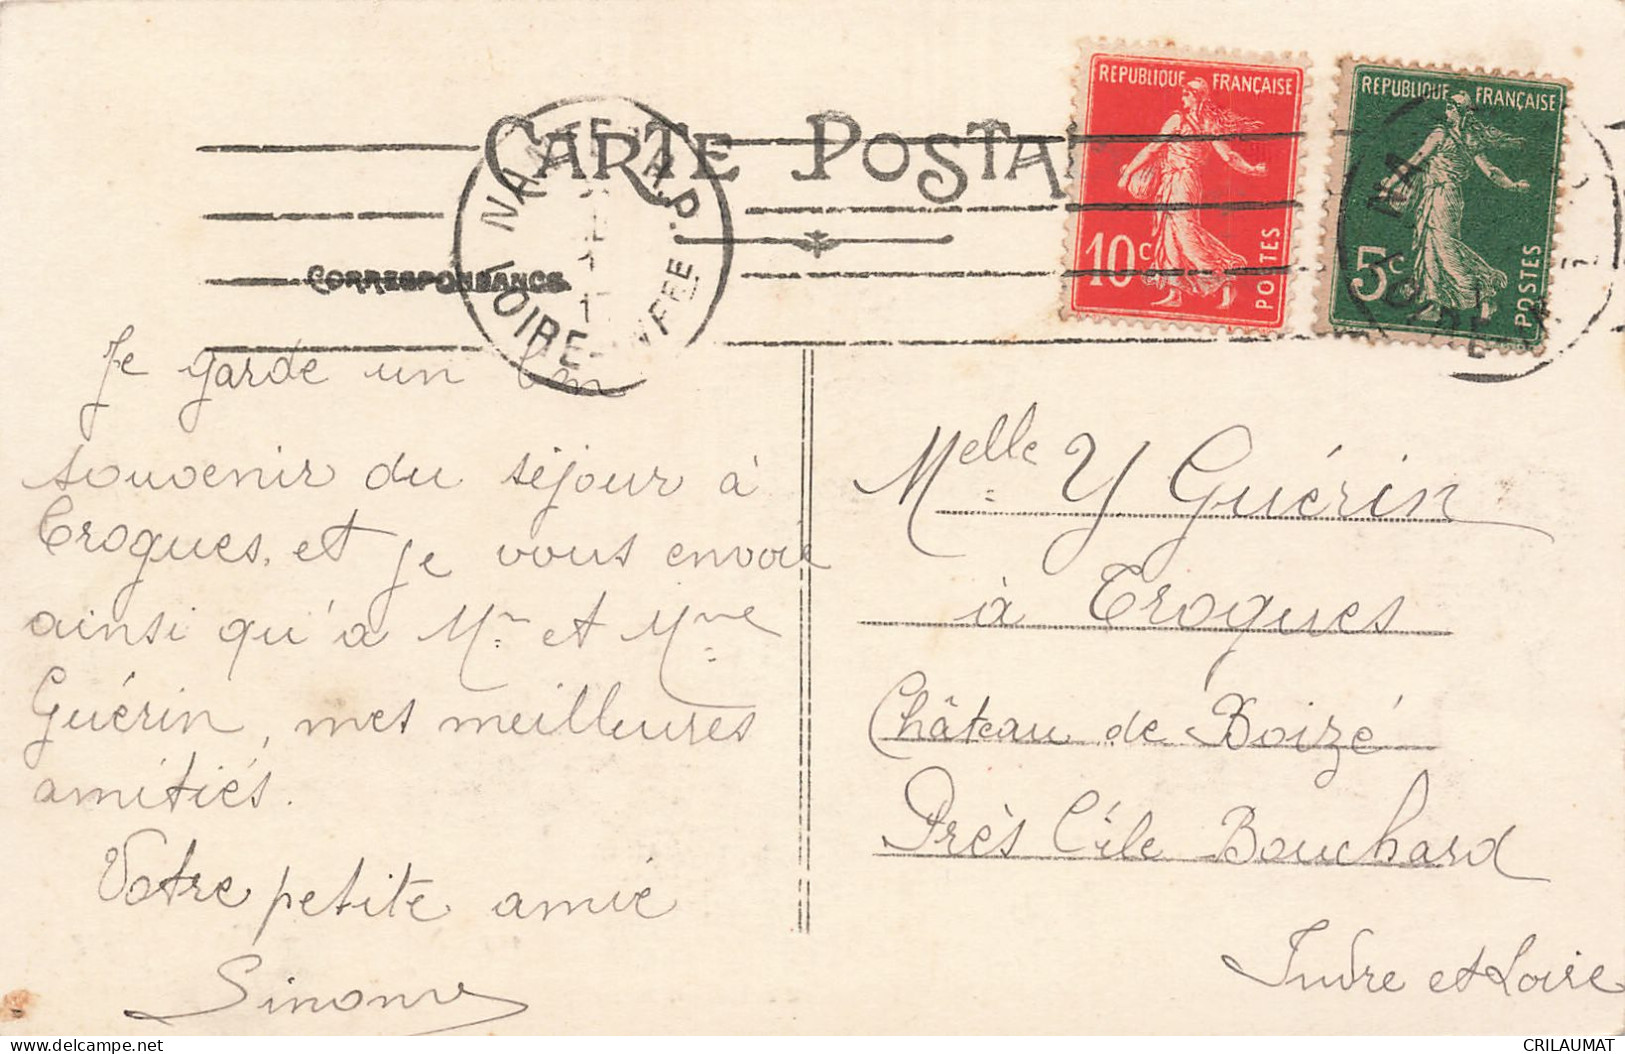 CARTE POSTA
REPUBLIQUE FRANÇAISE
10c
POSTES
REPUBLIQUE FRANÇAISE
5c
POSTES
NANTES R.P.
LOIRE-INFRE
CORRESPONDANCE
Je garde un bon
souvenir du séjour à
Crogues, et je vous envoie
ainsi qu'à Mr et Mme
Guérin, mes meilleures
amitiés.
Votre petite amie
Simone
Melle Y Guérin
à Crogues
Château de Boizé
Près l'île Bouchard
Indre et Loire
www.delcampe.net
CRILAUMAT